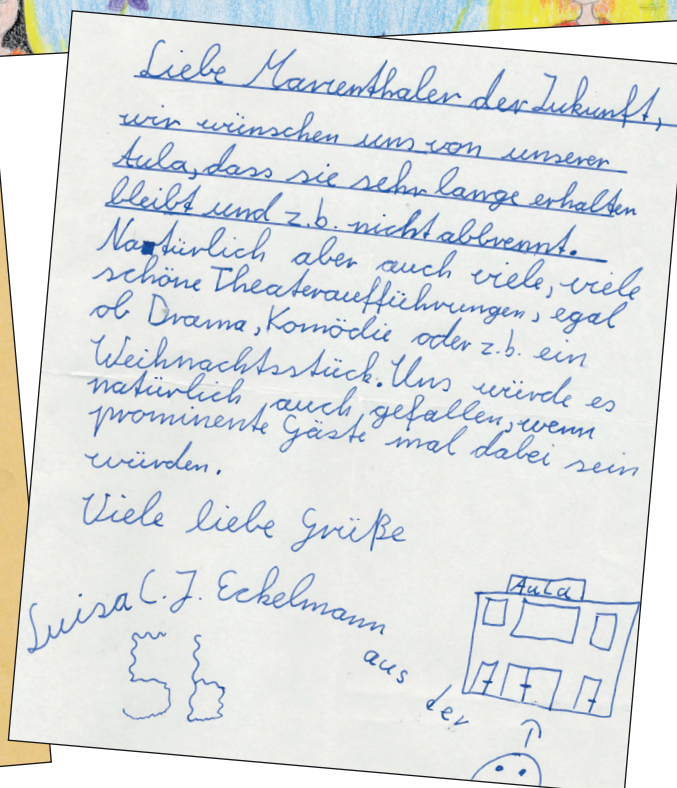 Liebe Marienthaler der Zukunft,
wir wünschen uns von unserer
Aula, dass sie sehr lange erhalten
bleibt und z.b. nicht abbrennt.
Natürlich aber auch viele, viele
schöne Theateraufführungen, egal
ob Drama, Komödie oder z.b. ein
Weihnachtsstück. Uns würde es
natürlich auch gefallen, wenn
prominente Gäste mal dabei sein
würden.
Viele liebe Grüße
Luisa C. J. Eckelmann
aus der
5b
Aula